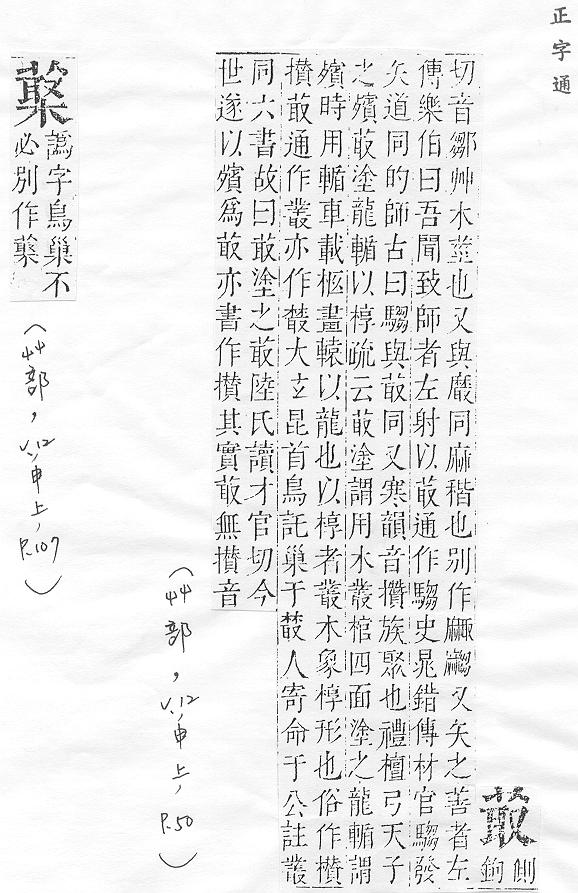 正字通
菆
側鉤
切音鄒艸木䕺也又與黀同麻稭也別作
又矢之善者左
傳樂伯曰吾聞致師者左射以菆通作騶史鼂錯傳材官騶發
矢道同的師古曰騶與菆同又寒韻音攢族聚也禮檀弓天子
之殯菆塗龍輴以椁疏云菆塗謂用木叢棺四面塗之龍輴謂
殯時用輴車載柩畫轅以龍也以椁者叢木象椁形也俗作攅
攅菆通作叢亦作樷大玄昆首鳥託巢于樷人寄命于公註叢
同六書故曰菆塗之菆陸氏讀才官切今
世遂以殯爲菆亦書作攅其實菆無攅音
(艸部, V.12, 申上, P.50)
譌字鳥巢不
必別作
(艸部, V.12, 申上, P.107)